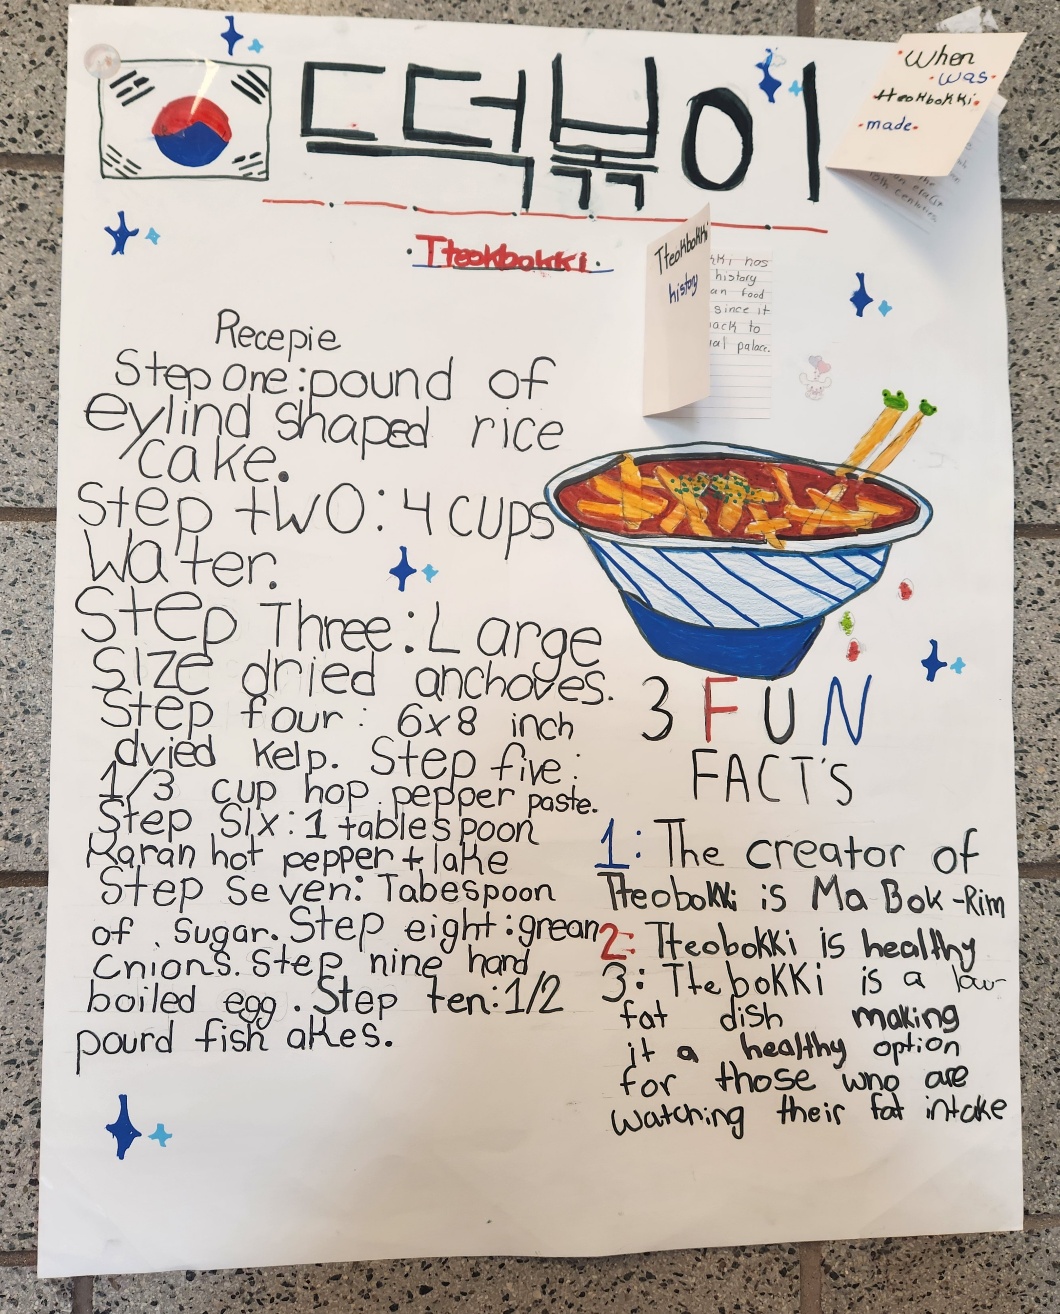 떡볶이
When
was
tteokbokki
made
Tteokbokki
Tteokbokki
history
kki has
history
an food
since it
ack to
al palace.
Recepie
Step One:pound of
eylind shaped rice
cake.
Step two: 4 cups
Water.
Step Three: Large
size dried anchoves.
Step four: 6x8 inch
dvied kelp. Step five:
1/3 cup hop pepper paste.
Step Six: 1 tablespoon
Karan hot pepper flake
Step Seven: Tabespoon
of . Sugar. Step eight: grean
cnions. Step nine hard
boiled egg. Step ten: 1/2
pourd fish akes.
3 FUN
FACT'S
1: The creator of
Tteobokki is Ma Bok-Rim
2: Tteobokki is healthy
3: Ttebokki is a low-
fat dish making
it a healthy option
for those who are
watching their fat intake